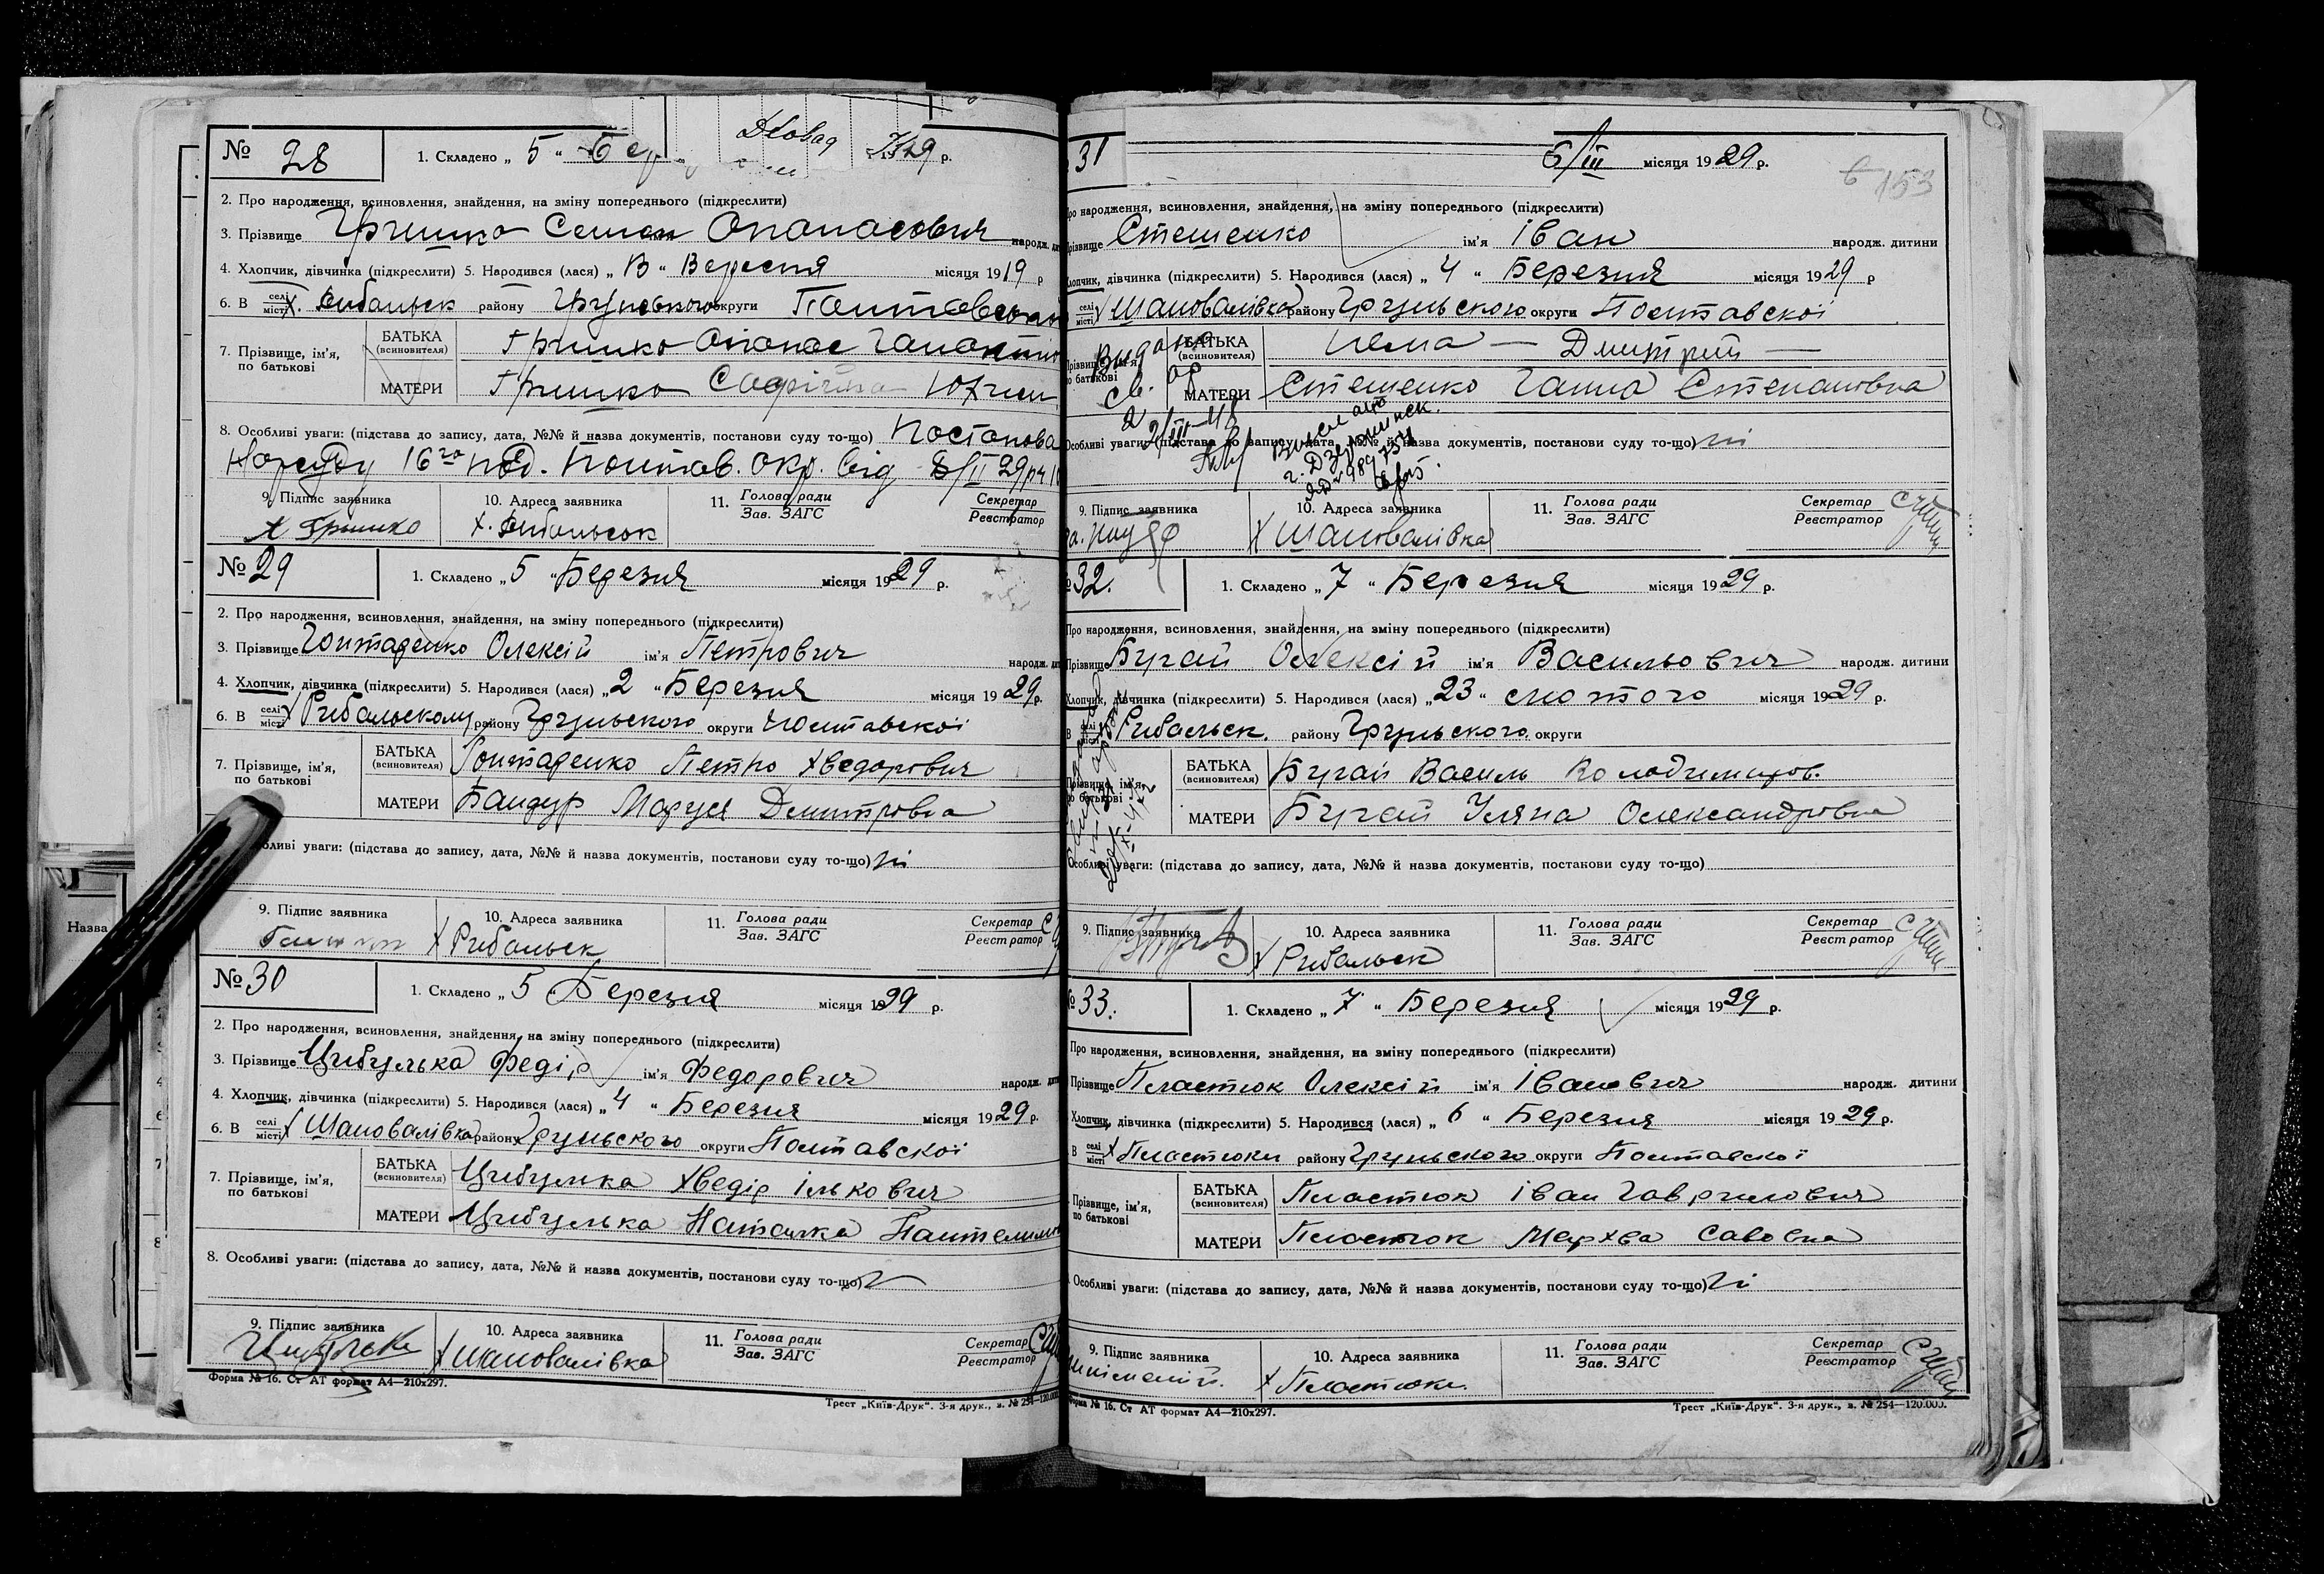 № 28
1. Складено „ 5 “ 1929 р.
2. Про народження, всиновлення, знайдення, на зміну попереднього (підкреслити)
3. Прізвище Гришко Семен Опанасович народж.
4. Хлопчик, дівчинка (підкреслити) 5. Народився (лася) „ “ Вересня місяця 1919 р
6. В селі місті х. району Грунського округи Полтавської
7. Прізвище, ім'я, по батькові
БАТЬКА (всиновителя) Гришко Опанас
МАТЕРИ Гришко
8. Особливі уваги: (підстава до запису, дата, №№ й назва документів, постанови суду то-що) Постанова
Нарсуду 16го Полтав. Окр. від
9. Підпис заявника Гришко
10. Адреса заявника х.
11. Голова ради Зав. ЗАГС
Секретар Реєстратор
№ 29
1. Складено „ 5 “ Березня місяця 1929 р.
2. Про народження, всиновлення, знайдення, на зміну попереднього (підкреслити)
3. Прізвище Олексій ім'я Петрович народж.
4. Хлопчик, дівчинка (підкреслити) 5. Народився (лася) „ 2 “ Березня місяця 1929 р.
6. В селі місті х Рибальскому району Грунського округи Полтавскої
7. Прізвище, ім'я, по батькові
БАТЬКА (всиновителя) Петро Хведорович
МАТЕРИ Бандур Маруся Дмитровна
уваги: (підстава до запису, дата, №№ й назва документів, постанови суду то-що) ні
9. Підпис заявника
10. Адреса заявника х Рибальск
11. Голова ради Зав. ЗАГС
Секретар Реєстратор
№ 30
1. Складено „ 5 Березня місяця 1929 р.
2. Про народження, всиновлення, знайдення, на зміну попереднього (підкреслити)
3. Прізвище Цибулька Федір ім'я Федорович народж.
4. Хлопчик, дівчинка (підкреслити) 5. Народився (лася) „ 4 “ Березня місяця 1929 р.
6. В селі місті х Шаповалівка району Грунського округи Полтавскої
7. Прізвище, ім'я, по батькові
БАТЬКА (всиновителя) Цибулька Хведір Ількович
МАТЕРИ Цибулька Наталка
8. Особливі уваги: (підстава до запису, дата, №№ й назва документів, постанови суду то-що)
9. Підпис заявника Цибулька
10. Адреса заявника х Шаповалівка
11. Голова ради Зав. ЗАГС
Секретар Реєстратор
Форма № 16. Ст АТ формат А4—210х297.
Трест „Київ-Друк“. 3-я друк., з. № 254—120.000
31
6/III місяця 1929 р.
153
народження, всиновлення, знайдення, на зміну попереднього (підкреслити)
Прізвище Стешенко ім'я Іван народж. дитини
Хлопчик, дівчинка (підкреслити) 5. Народився (лася) „ 4 “ Березня місяця 1929 р
селі місті х Шаповалівка району Грунського округи Полтавскої
БАТЬКА (всиновителя) нема — Дмитрий —
МАТЕРИ Стешенко Ганна Степановна
Особливі уваги: (підстава до запису, дата, №№ й назва документів, постанови суду то-що) ні
9. Підпис заявника
10. Адреса заявника х Шаповалівка
11. Голова ради Зав. ЗАГС
Секретар Реєстратор
32.
1. Складено „ 7 “ Березня місяця 1929 р.
народження, всиновлення, знайдення, на зміну попереднього (підкреслити)
Прізвище Бугай Олексій ім'я Васильович народж. дитини
Хлопчик, дівчинка (підкреслити) 5. Народився (лася) „ 23 “ лютого місяця 1929 р.
В селі місті Рибальск. району Грунського округи
БАТЬКА (всиновителя) Бугай Василь Володимиров.
МАТЕРИ Бугай Уляна Олександровна
Особливі уваги: (підстава до запису, дата, №№ й назва документів, постанови суду то-що)
9. Підпис заявника
10. Адреса заявника х Рибальск
11. Голова ради Зав. ЗАГС
Секретар Реєстратор
№ 33.
1. Складено „ 7 “ Березня місяця 1929 р.
народження, всиновлення, знайдення, на зміну попереднього (підкреслити)
Прізвище Пластюк Олексій ім'я Іванович народж. дитини
Хлопчик, дівчинка (підкреслити) 5. Народився (лася) „ 6 “ Березня місяця 1929 р.
В селі місті х Пластюки району Грунського округи Полтавскої
Прізвище, ім'я, по батькові
БАТЬКА (всиновителя) Пластюк Іван Гаврилович
МАТЕРИ Пластюк Мархва Савовна
Особливі уваги: (підстава до запису, дата, №№ й назва документів, постанови суду то-що) ні
9. Підпис заявника
10. Адреса заявника х Пластюки.
11. Голова ради Зав. ЗАГС
Секретар Реєстратор
Форма № 16. Ст АТ формат А4—210х297.
Трест „Київ-Друк“. 3-я друк., з. № 254—120.000.